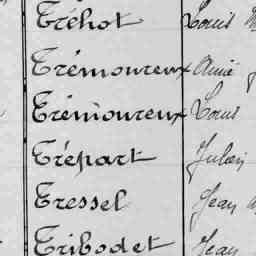 Tréhot Louis
Trémoureux Aimé
Trémoureux Louis
Trépart Julien
Tressel Jean
Tribodet Jean